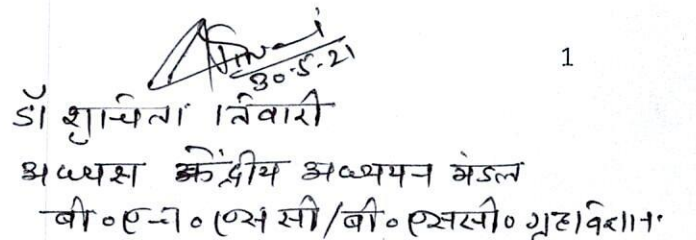 30.5.21
1
डॉ शुचिता तिवारी
अध्यक्ष केंद्रीय अध्ययन मंडल
बी०ए-ी० एस सी/बी० एससी० गृहविज्ञान